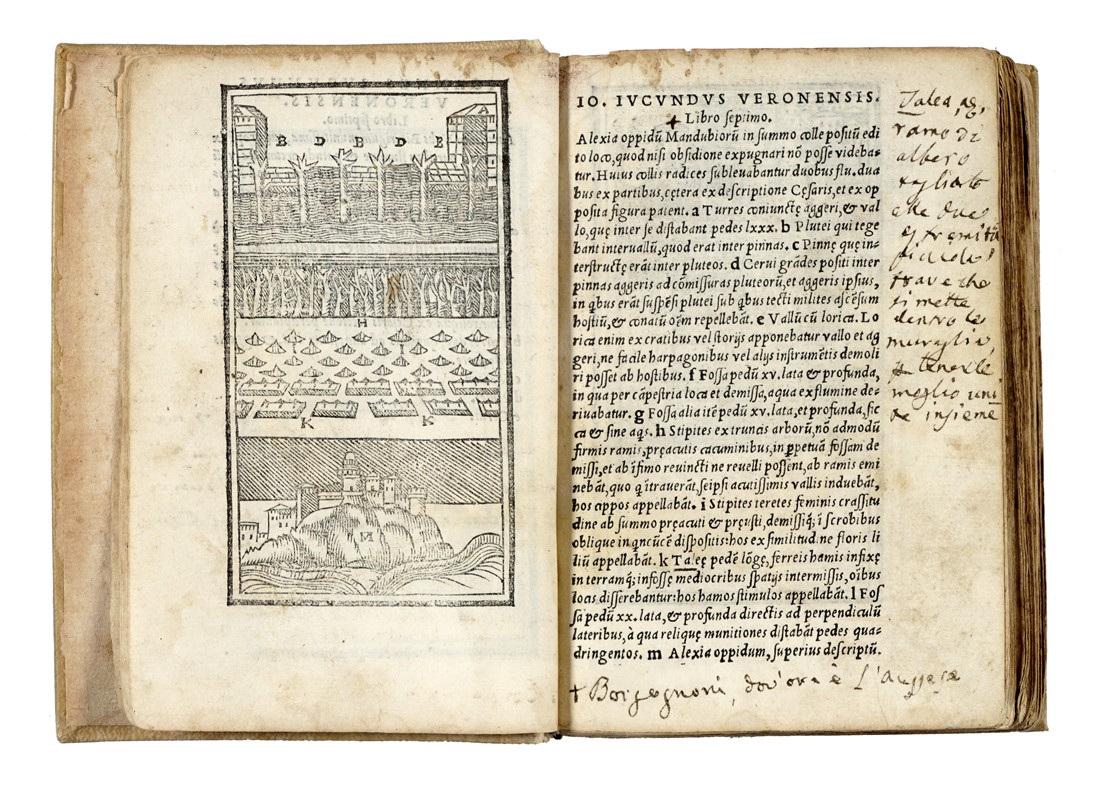 A
A
B D B D E
H
I
K K
M
IO. IVCVNDVS VERONENSIS.
Libro septimo.
Alexia oppidū Mandubiorū in summo colle positū edi
to loco, quod nisi obsidione expugnari nō posse videba-
tur. Huius collis radices subleuabantur duobus flu. dua
bus ex partibus, cętera ex descriptione Cęsaris, et ex op
posita figura patent. a Turres coniunctę aggeri, & val
lo, quę inter se distabant pedes lxxx. b Plutei qui tege
bant interuallū, quod erat inter pinnas. c Pinnę quę in-
terstructę erāt inter pluteos. d Cerui grādes positi inter
pinnas aggeris ad cōmissuras pluteorū, et aggeris ipsius,
in qbus erāt suspēsi plutei sub qbus tecti milites ascēsum
hostiū, & conatū oīm repellebāt. e Vallū cū lorica. Lo
rica enim ex cratibus vel storijs apponebatur vallo et ag
geri, ne facile harpagonibus vel alijs instrumētis demoli
ri posset ab hostibus. f Fossa pedū xv. lata & profunda,
in qua per cāpestria loca et demissa, aqua ex flumine de-
riuabatur. g Fossa alia itē pedū xv. lata, et profunda, sic
ca & sine aqs. h Stipites ex truncis arborū, nō admodū
firmis ramis, pręacutis cacuminibus, in ꝑpetuā fossam de
missi, et ab īfimo reuincti ne reuelli possent, ab ramis emi
nebāt, quo q ītrauerāt, seipsi acutissimis vallis induebāt,
hos cippos appellabāt. i Stipites teretes feminis crassitu
dine ab summo pręacuti & pręusti, demissiq; ī scrobibus
oblique in qncūcē dispositis: hos ex similitud. ne floris li
liū appellabāt. k Taleę pedē lōgę, ferreis hamis infixę
in terramq; infossę mediocribus spatijs intermissis, oībus
locis disserebantur: hos hamos stimulos appellabāt. l Fos
sa pedū xx. lata, & profunda directis ad perpendiculū
lateribus, à qua reliquę munitiones distabāt pedes qua-
dringentos. m Alexia oppidum, superius descriptū.
Talea, ag,
ramo di
albero
tagliato
alle due
estremità
piccola
trave che
si mette
dentro le
muraglie
p tenerle
meglio uni
te insieme
† Borgognoni, dov'ora è L'aussese